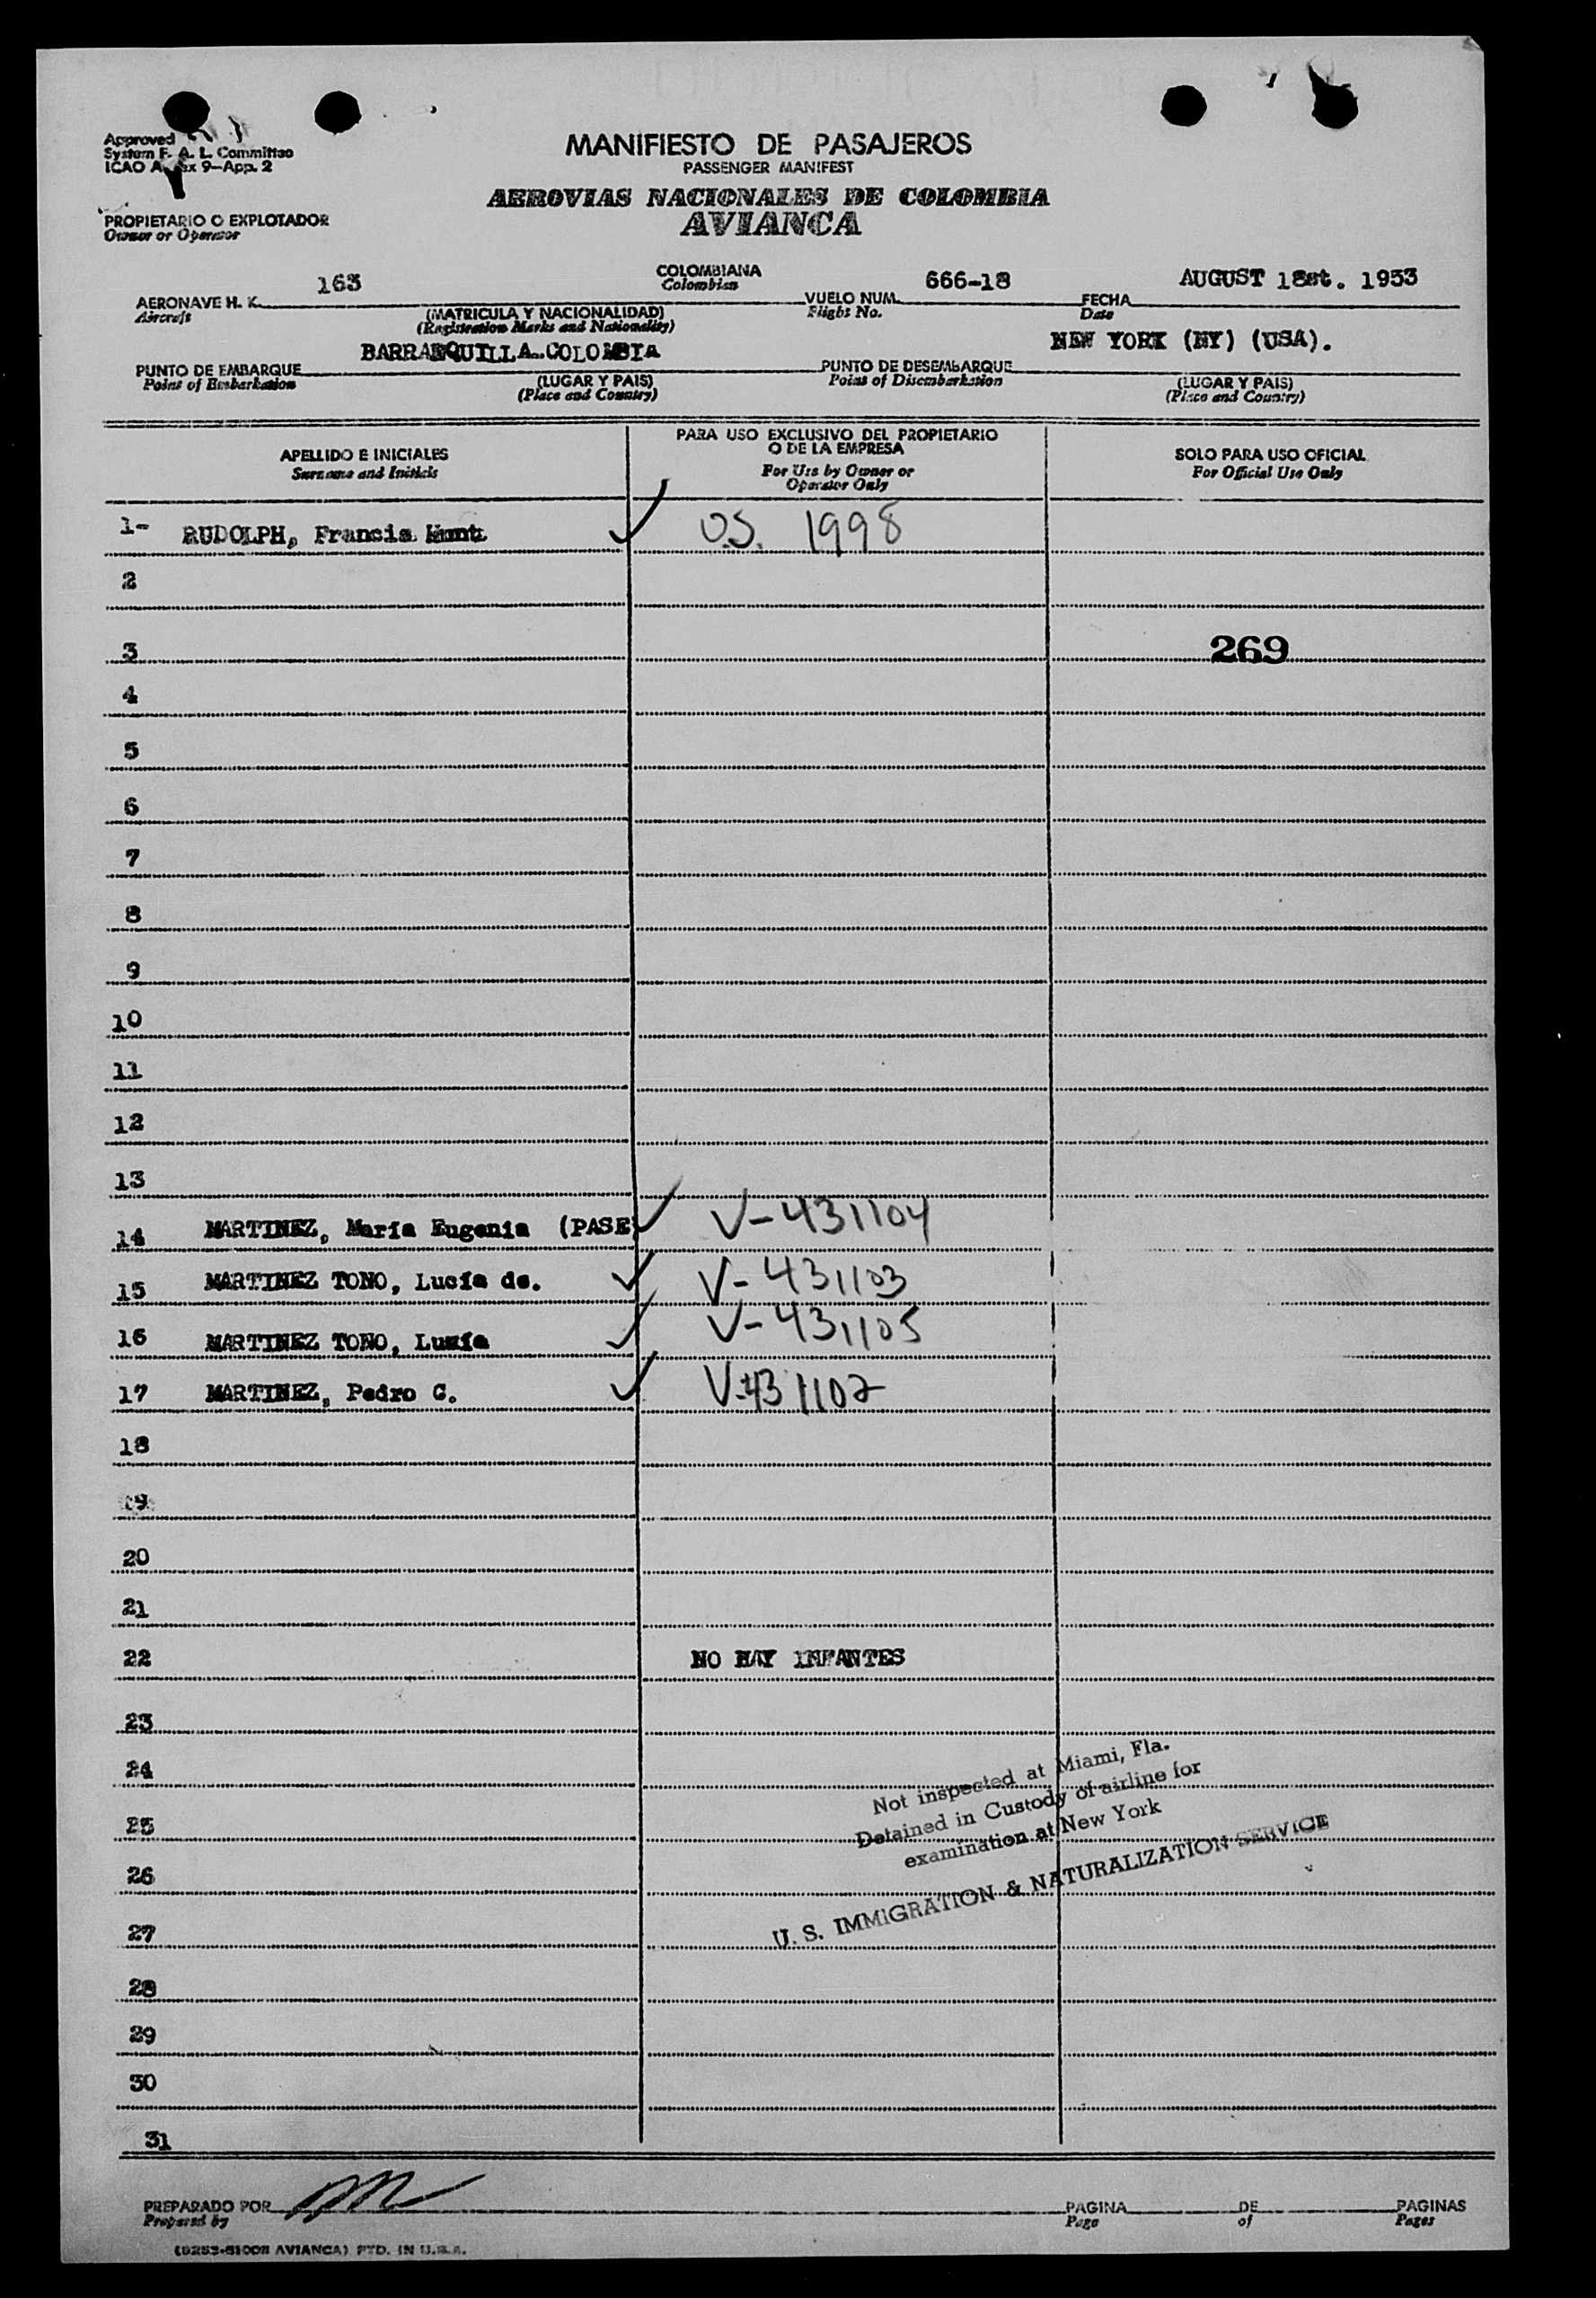 Approved
System F. A. L. Committee
ICAO Annex 9—App. 2
MANIFIESTO DE PASAJEROS
PASSENGER MANIFEST
AEROVIAS NACIONALES DE COLOMBIA
AVIANCA
PROPIETARIO O EXPLOTADOR
Owner or Operator
AERONAVE H. K. 163 COLOMBIANA VUELO NUM. 666-18 FECHA AUGUST 18st. 1953
Aircraft Colombian Flight No. Date
(MATRICULA Y NACIONALIDAD)
(Registration Marks and Nationality)
PUNTO DE EMBARQUE BARRANQUILLA-COLOMBIA PUNTO DE DESEMBARQUE NEW YORK (NY) (USA).
Point of Embarkation Point of Disembarkation
(LUGAR Y PAIS) (LUGAR Y PAIS)
(Place and Country) (Place and Country)
APELLIDO E INICIALES
Surname and Initials
PARA USO EXCLUSIVO DEL PROPIETARIO
O DE LA EMPRESA
For Use by Owner or
Operator Only
SOLO PARA USO OFICIAL
For Official Use Only
1- RUDOLPH, Francis U.S. 1998
2
3 269
4
5
6
7
8
9
10
11
12
13
14 MARTINEZ, María Eugenia (PASE) V-431104
15 MARTINEZ TONO, Lucía de. V-431103
16 MARTINEZ TONO, Lucía V-431105
17 MARTINEZ, Pedro C. V-431102
18
19
20
21
22 NO HAY INFANTES
23
24
25
26
27
28
29
30
31
Not inspected at Miami, Fla.
Detained in Custody of airline for
examination at New York
U. S. IMMIGRATION & NATURALIZATION SERVICE
PREPARADO POR PAGINA DE PAGINAS
Prepared by Page of Pages
AVIANCA) PTD. IN U.S.A.